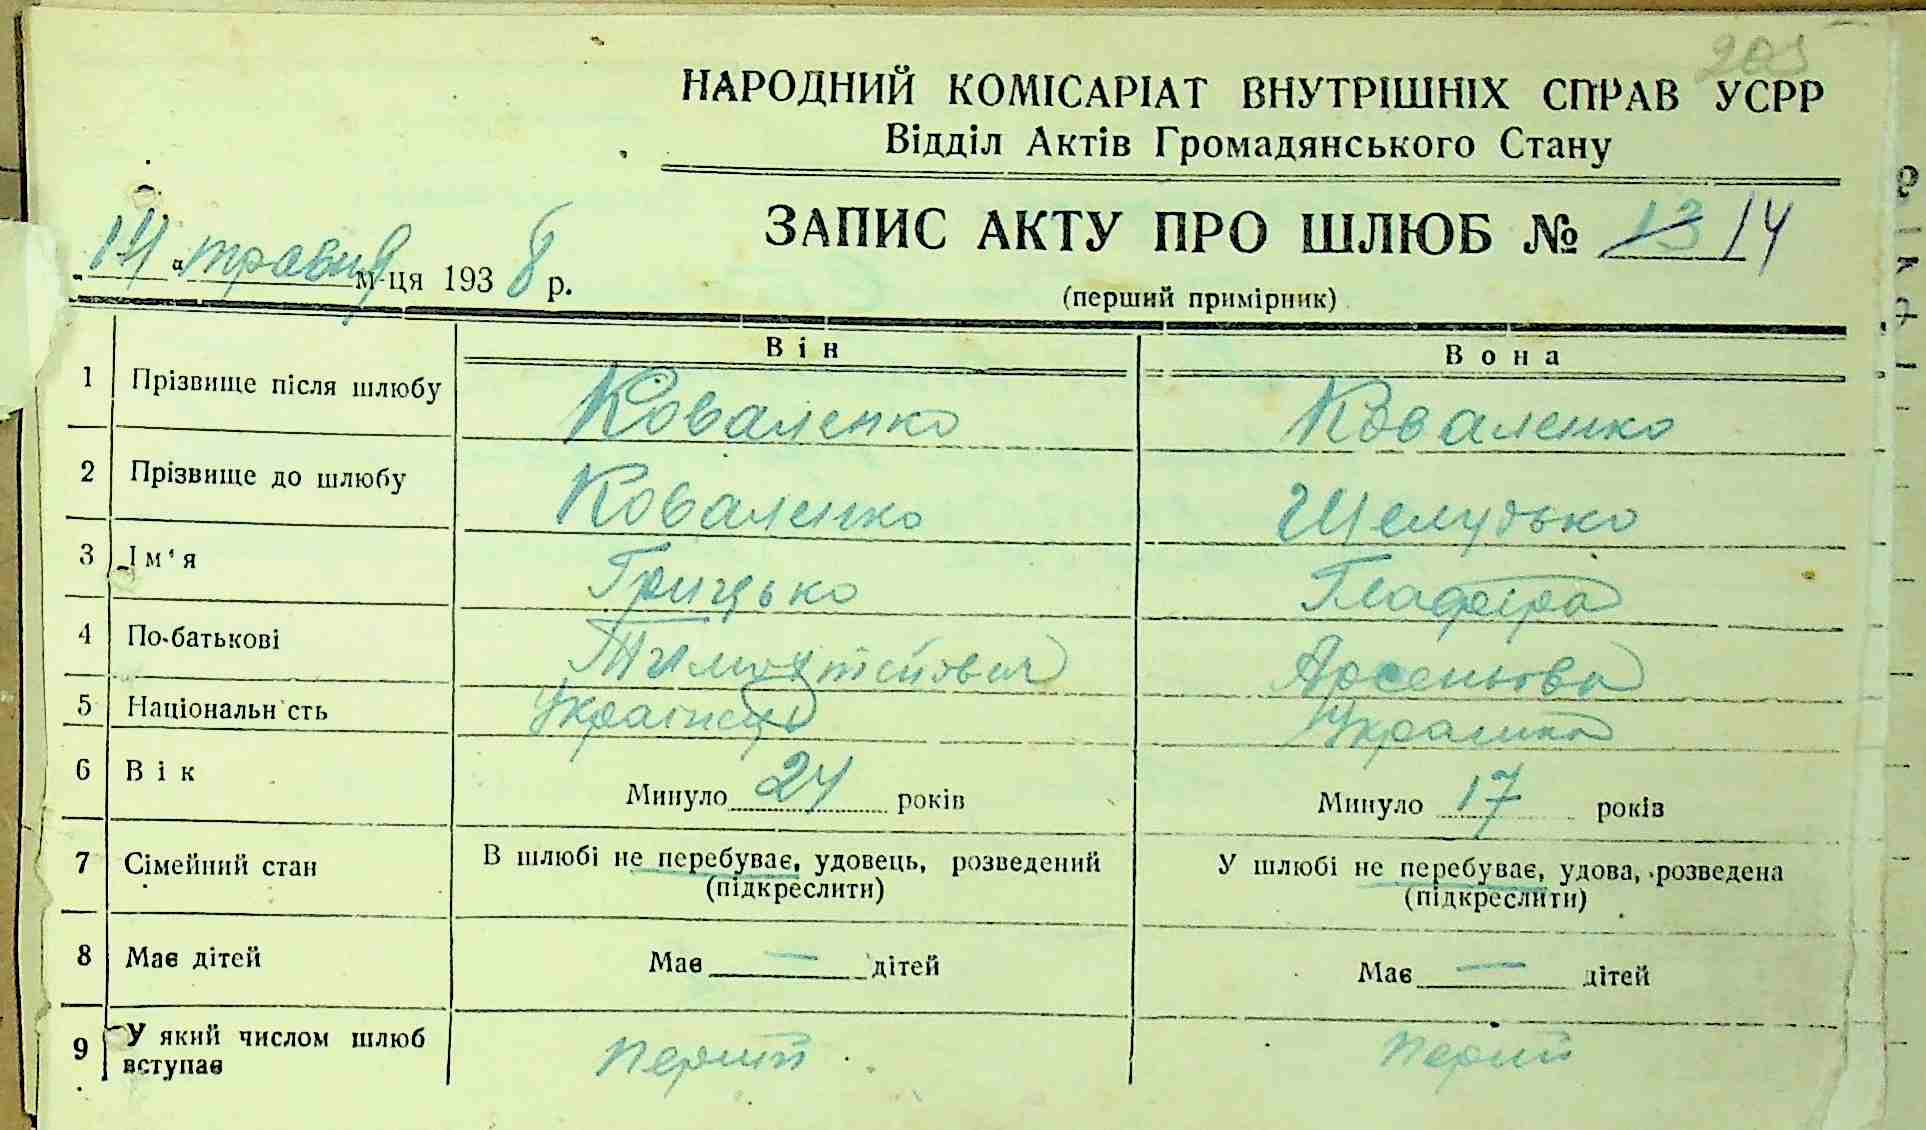 203
НАРОДНИЙ КОМІСАРІАТ ВНУТРІШНІХ СПРАВ УСРР
Відділ Актів Громадянського Стану
ЗАПИС АКТУ ПРО ШЛЮБ № 13 14
14 „ травня м-ця 1938 р.
(перший примірник)
Він Вона
1 Прізвище після шлюбу Коваленко Коваленко
2 Прізвище до шлюбу Коваленко Шелудько
3 Ім'я Грицько Глафіра
4 По-батькові Тимофійович Арсеньова
5 Національн сть Українець Українка
6 Вік Минуло 24 років Минуло 17 років
7 Сімейний стан В шлюбі не перебуває, удовець, розведений У шлюбі не перебуває, удова, розведена
(підкреслити) (підкреслити)
8 Має дітей Має — дітей Має — дітей
9 У який числом шлюб вступає перший перший